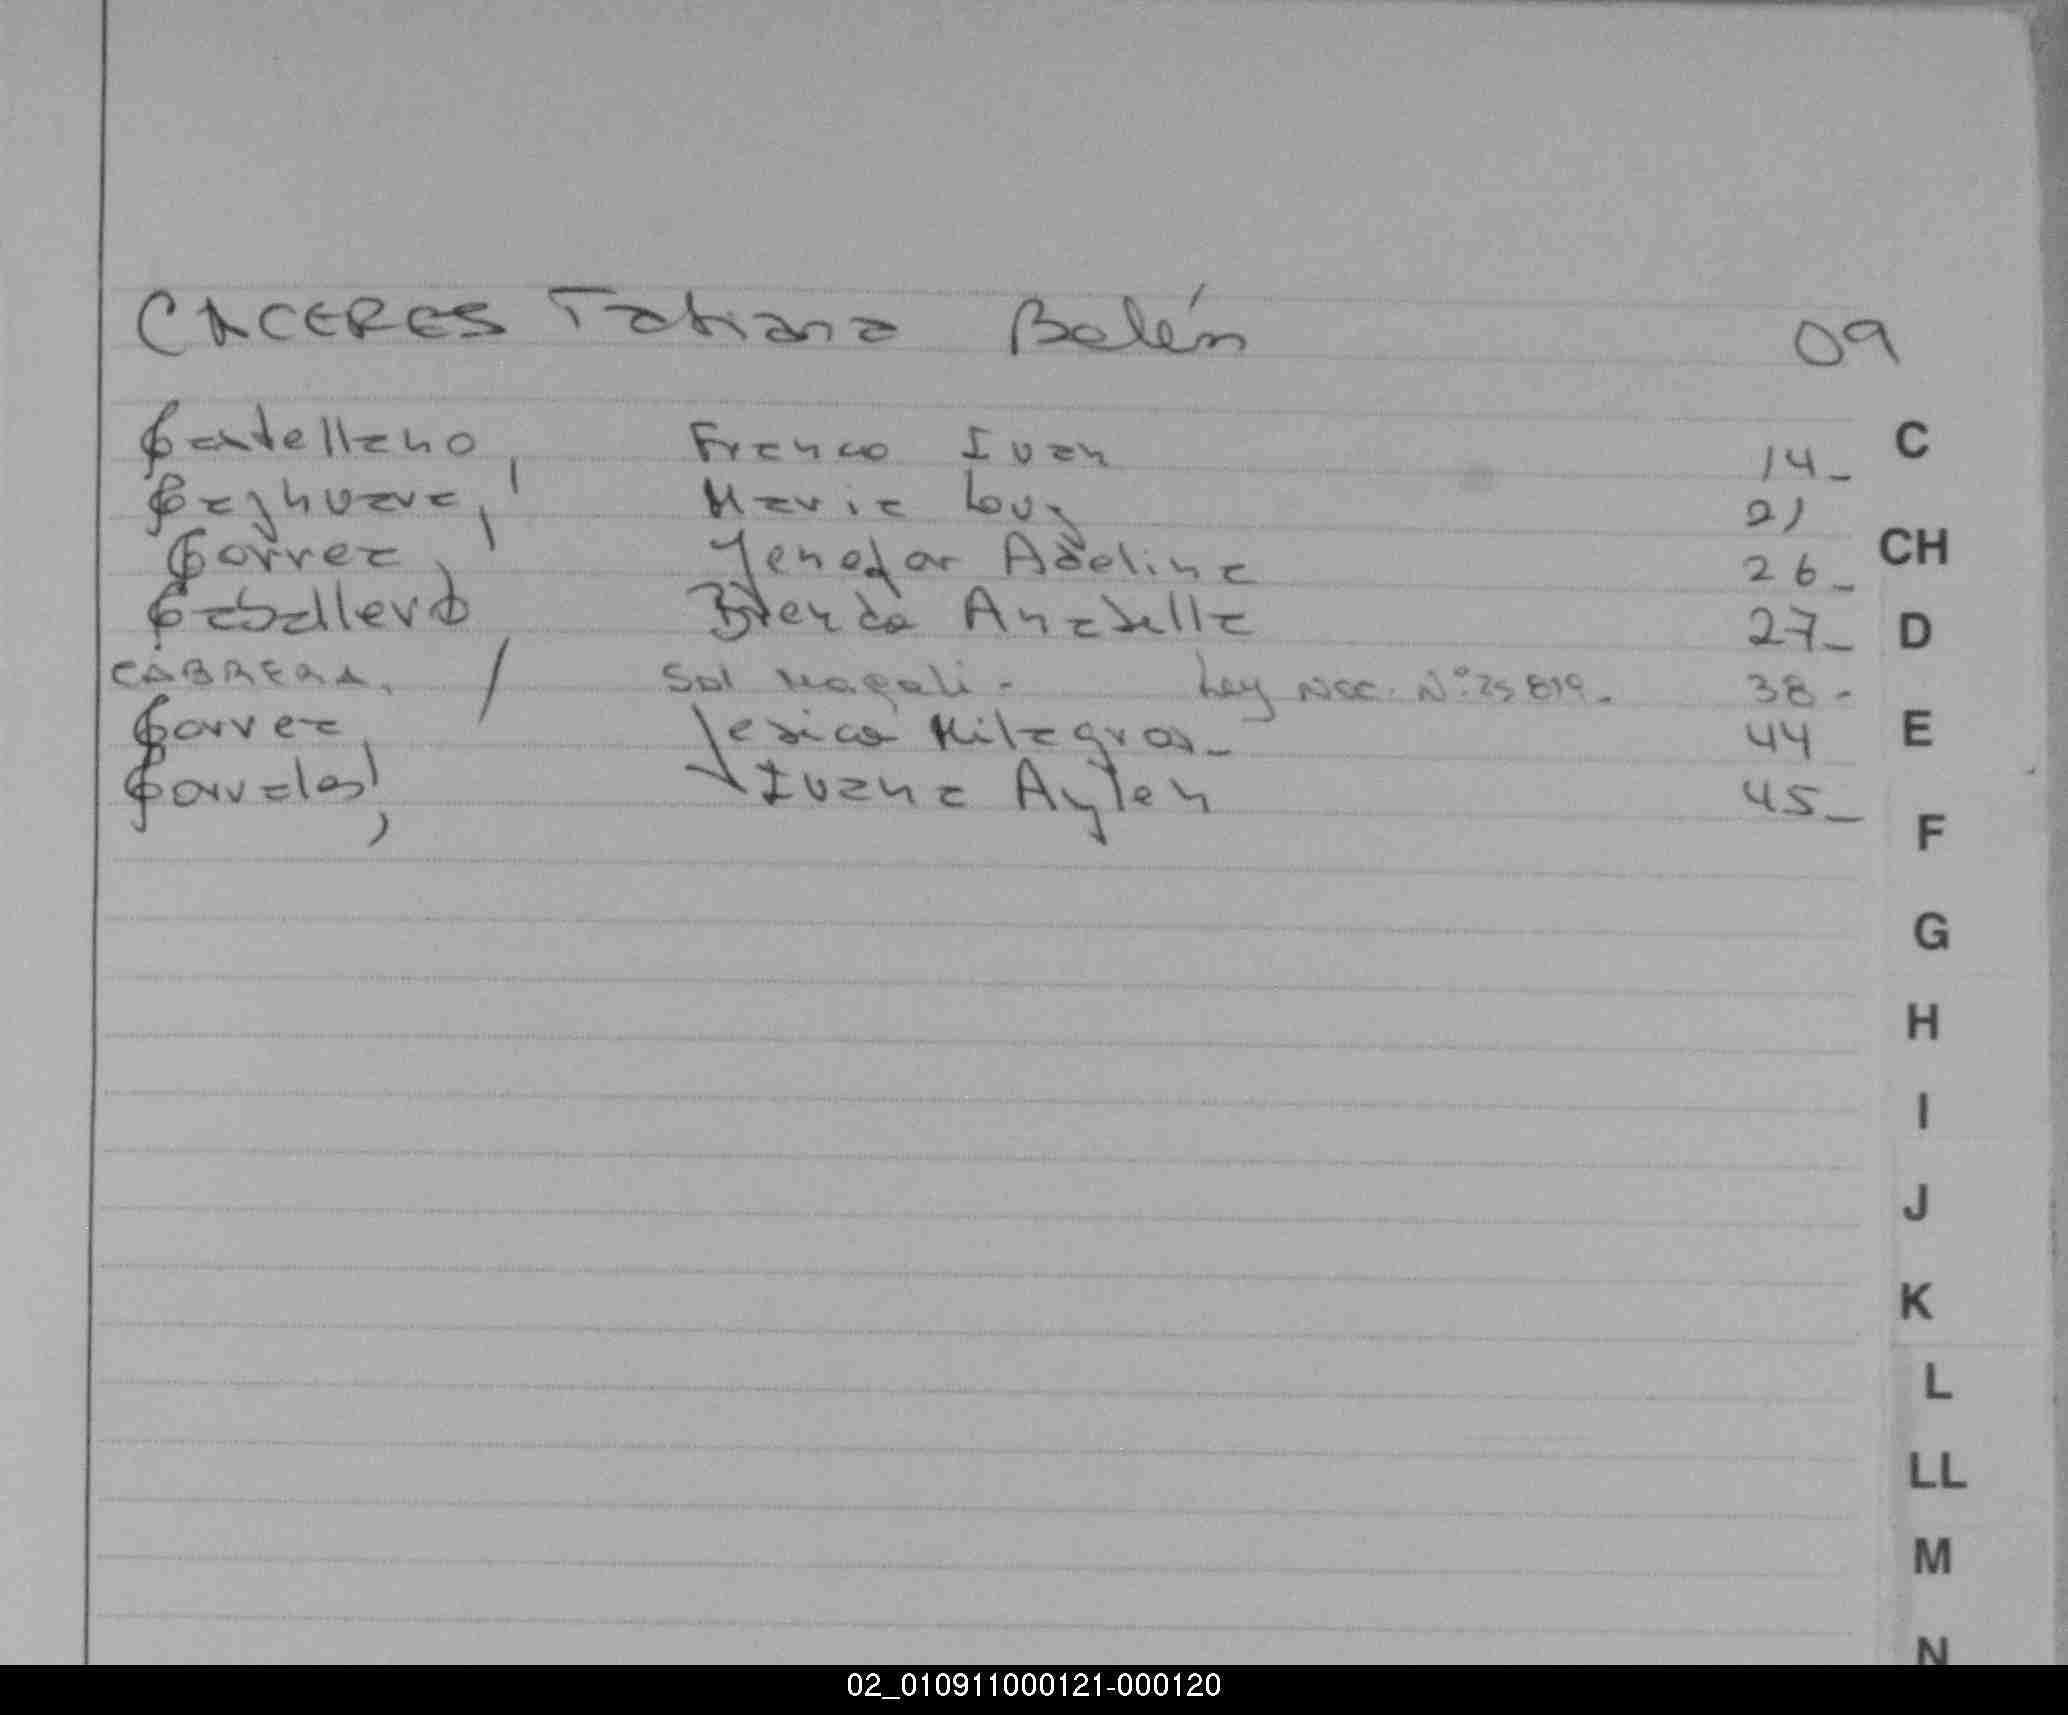 CACERES Tatiana Belén 09
Castellano, Franco Ivan 14_
Caghuara, Maria Luz 21
Correa, Jenefer Adelina 26_
Caballero Brenda Anabella 27_
CABRERA, / Sol Magali - Ley Nac. N° 25.819. 38-
Correa, Jesica Milagros_ 44
Corrales, Ivana Aylen 45_
C
CH
D
E
F
G
H
I
J
K
L
LL
M
N
02_010911000121-000120